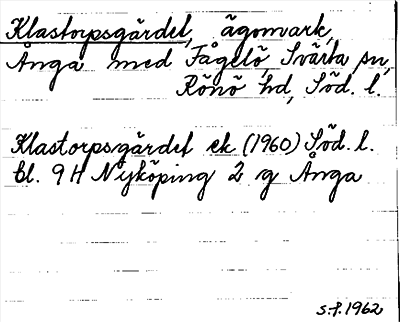 Klastorpsgärdet, ägomark,
Ånga med Fågelö, Svärta sn,
Rönö hd, Söd. l.
Klastorpsgärdet ek (1960) Söd. l.
bl. 9 H Nyköping 2 g Ånga
S.P. 1962